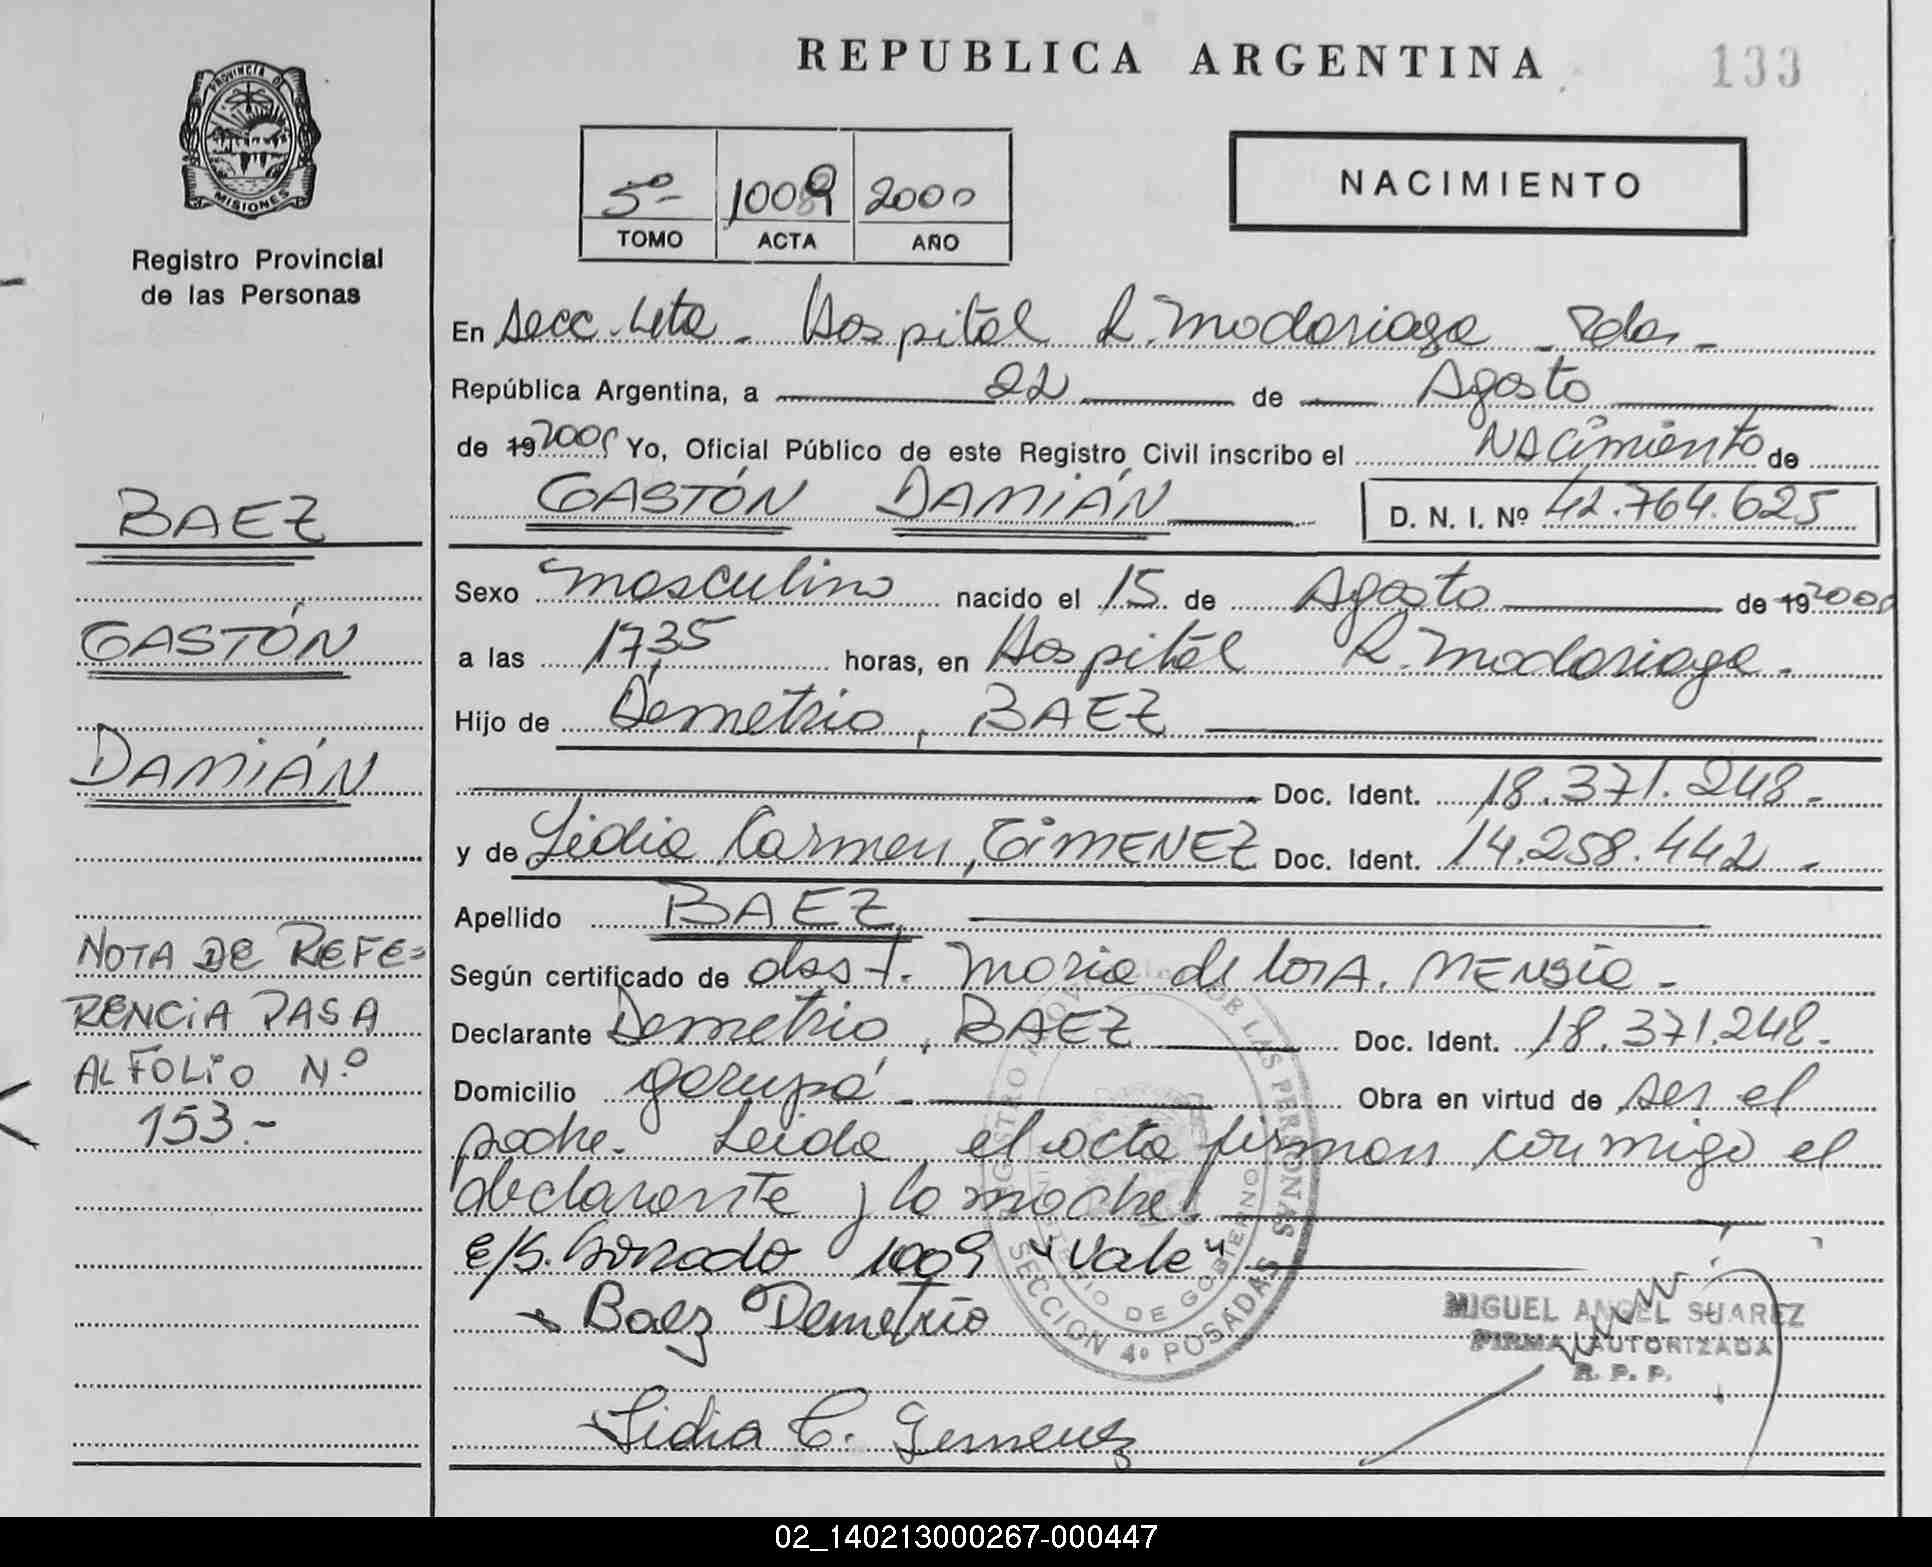 REPUBLICA ARGENTINA
133
PROVINCIA DE
MISIONES
Registro Provincial
de las Personas
5º- 1009 2000
TOMO ACTA AÑO
NACIMIENTO
En Secc. 4ta - Hospital R. Madariaga - Pdas -
República Argentina, a 22 de Agosto
de 19 2000 Yo, Oficial Público de este Registro Civil inscribo el Nacimiento de
GASTÓN DAMIÁN D. N. I. Nº 42.764.625
BAEZ
GASTÓN
DAMIÁN
NOTA DE REFE=
RENCIA PASA
AL FOLIO N.º
153.-
Sexo masculino nacido el 15 de Agosto de 19 2000
a las 17,35 horas, en Hospital R. Madariaga.
Hijo de Demetrio, BAEZ
Doc. Ident. 18.371.248.-
y de Lidia Carmen, GIMENEZ Doc. Ident. 14.258.442.-
Apellido BAEZ
Según certificado de obst. Maria de los A. MENSIA.-
Declarante Demetrio, BAEZ Doc. Ident. 18.371.248.-
Domicilio garupá.- Obra en virtud de ser el
padre. Leida el acta firman conmigo el
declarante y la madre.
e/s. borrado 1009 "Vale"
Baez Demetrio
Lidia C. Gimenez
REGISTRO PROVINCIAL DE LAS PERSONAS
MINISTERIO DE GOBIERNO
SECCION 4º POSADAS
MIGUEL ANGEL SUAREZ
FIRMA AUTORIZADA
R. P. P.
02_140213000267-000447